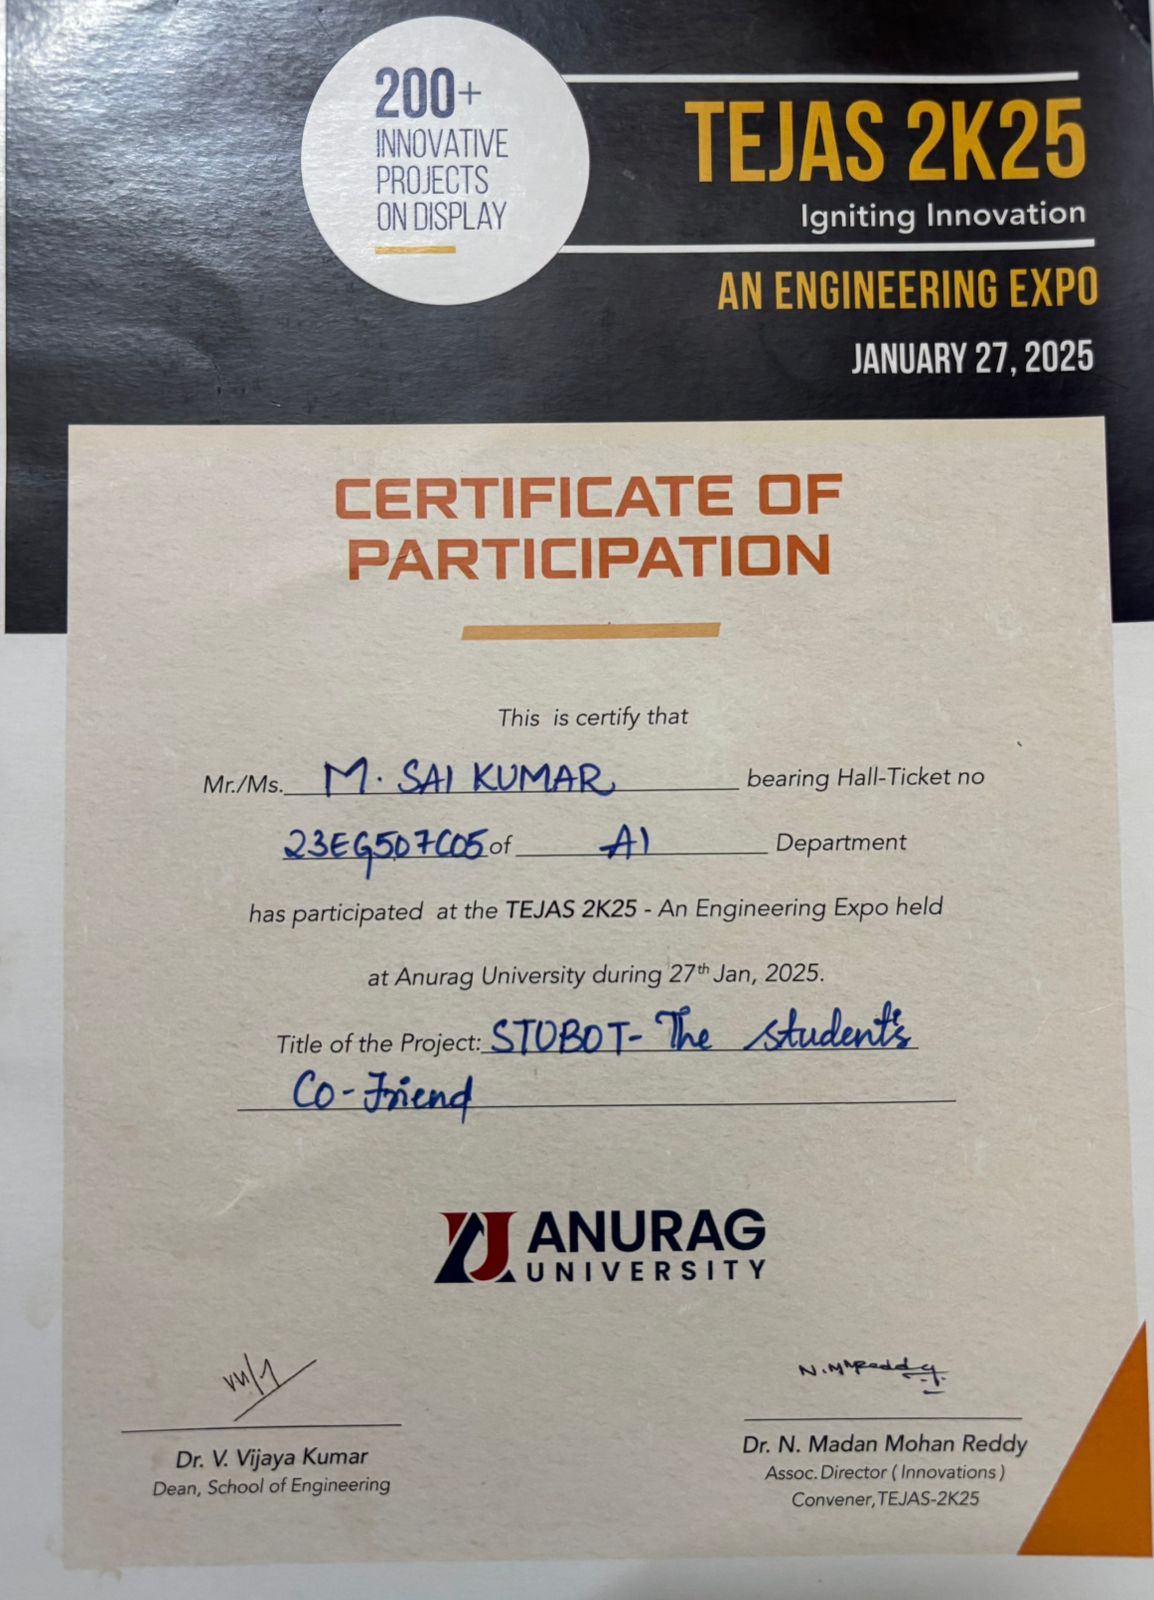 200+
INNOVATIVE
PROJECTS
ON DISPLAY
TEJAS 2K25
Igniting Innovation
AN ENGINEERING EXPO
JANUARY 27, 2025
CERTIFICATE OF
PARTICIPATION
This is certify that
Mr./Ms. M. SAI KUMAR bearing Hall-Ticket no
23EG507C05 of AI Department
has participated at the TEJAS 2K25 - An Engineering Expo held
at Anurag University during 27th Jan, 2025.
Title of the Project: STUBOT- The student's
Co-Friend
ANURAG
UNIVERSITY
N. MM Reddy
Dr. V. Vijaya Kumar
Dean, School of Engineering
Dr. N. Madan Mohan Reddy
Assoc. Director ( Innovations )
Convener, TEJAS-2K25